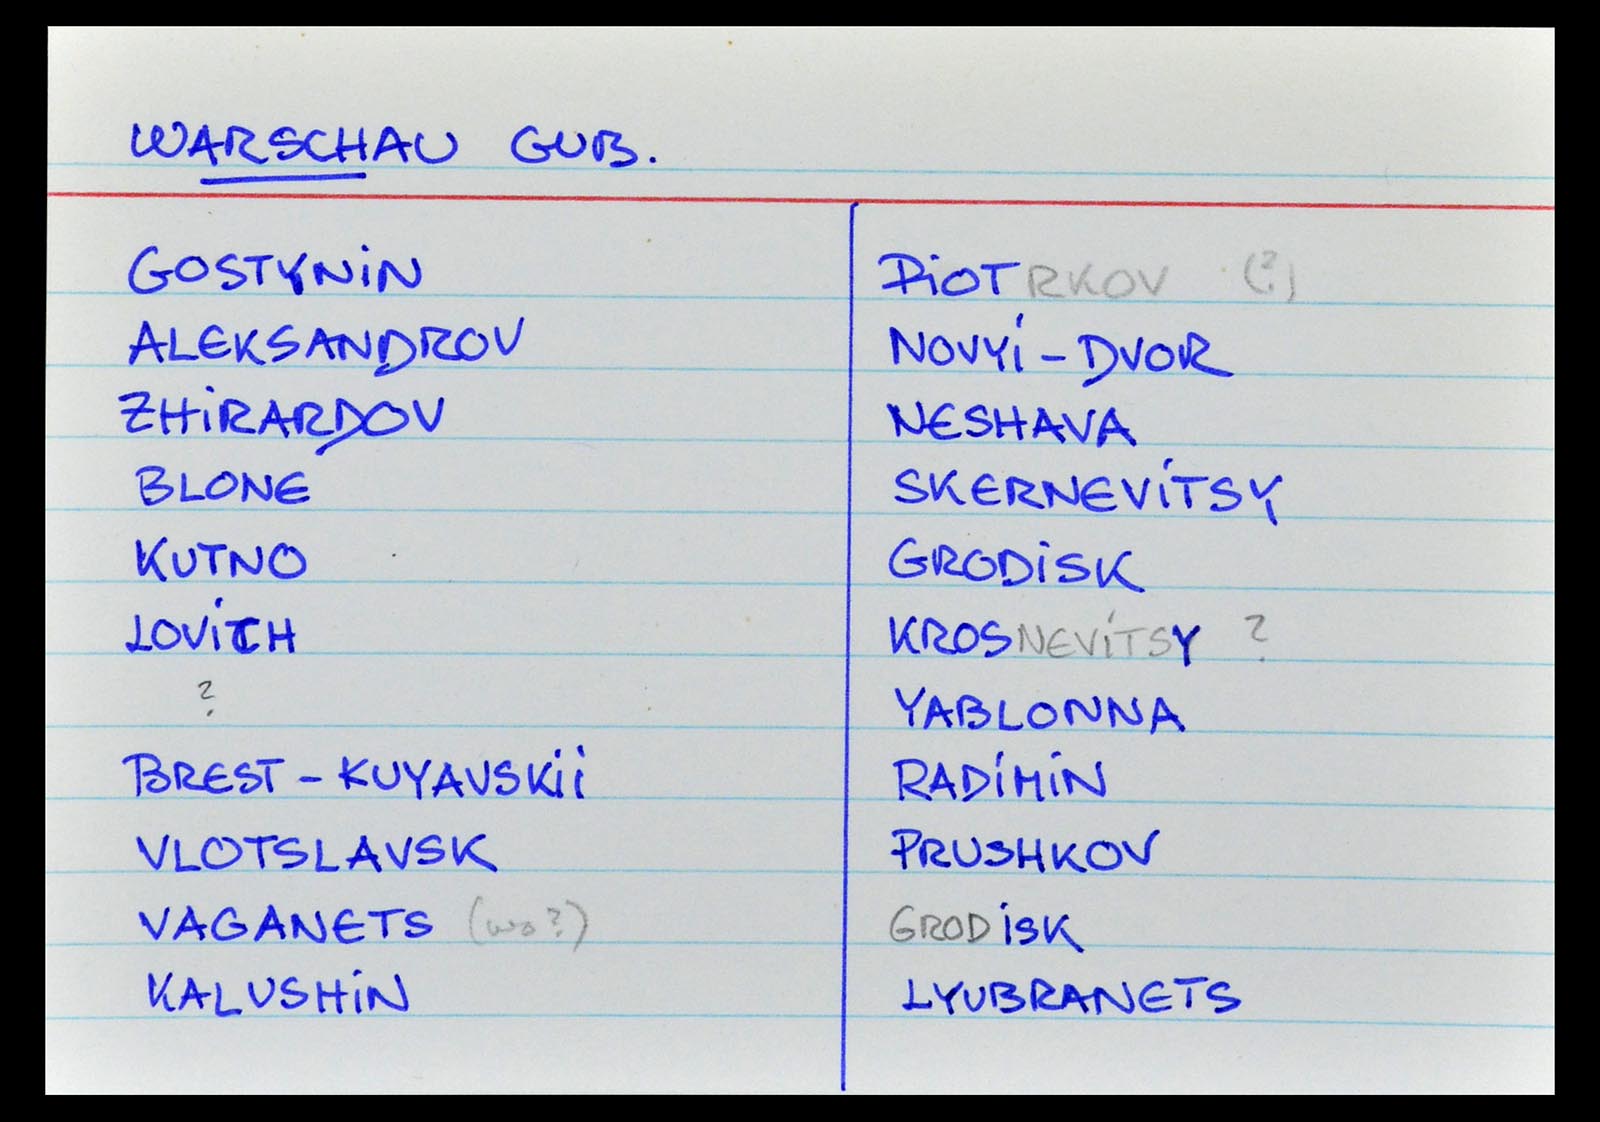 WARSCHAU GUB.
GOSTYNIN
ALEKSANDROV
ZHIRARDOV
BLONE
KUTNO
LOVITCH
?
BREST - KUYAVSKII
VLOTSLAVSK
VAGANETS (wo?)
KALUSHIN
PIOTRKOV (?)
NOVYI - DVOR
NESHAVA
SKERNEVITSY
GRODISK
KROSNEVITSY ?
YABLONNA
RADIMIN
PRUSHKOV
GRODISK
LYUBRANETS